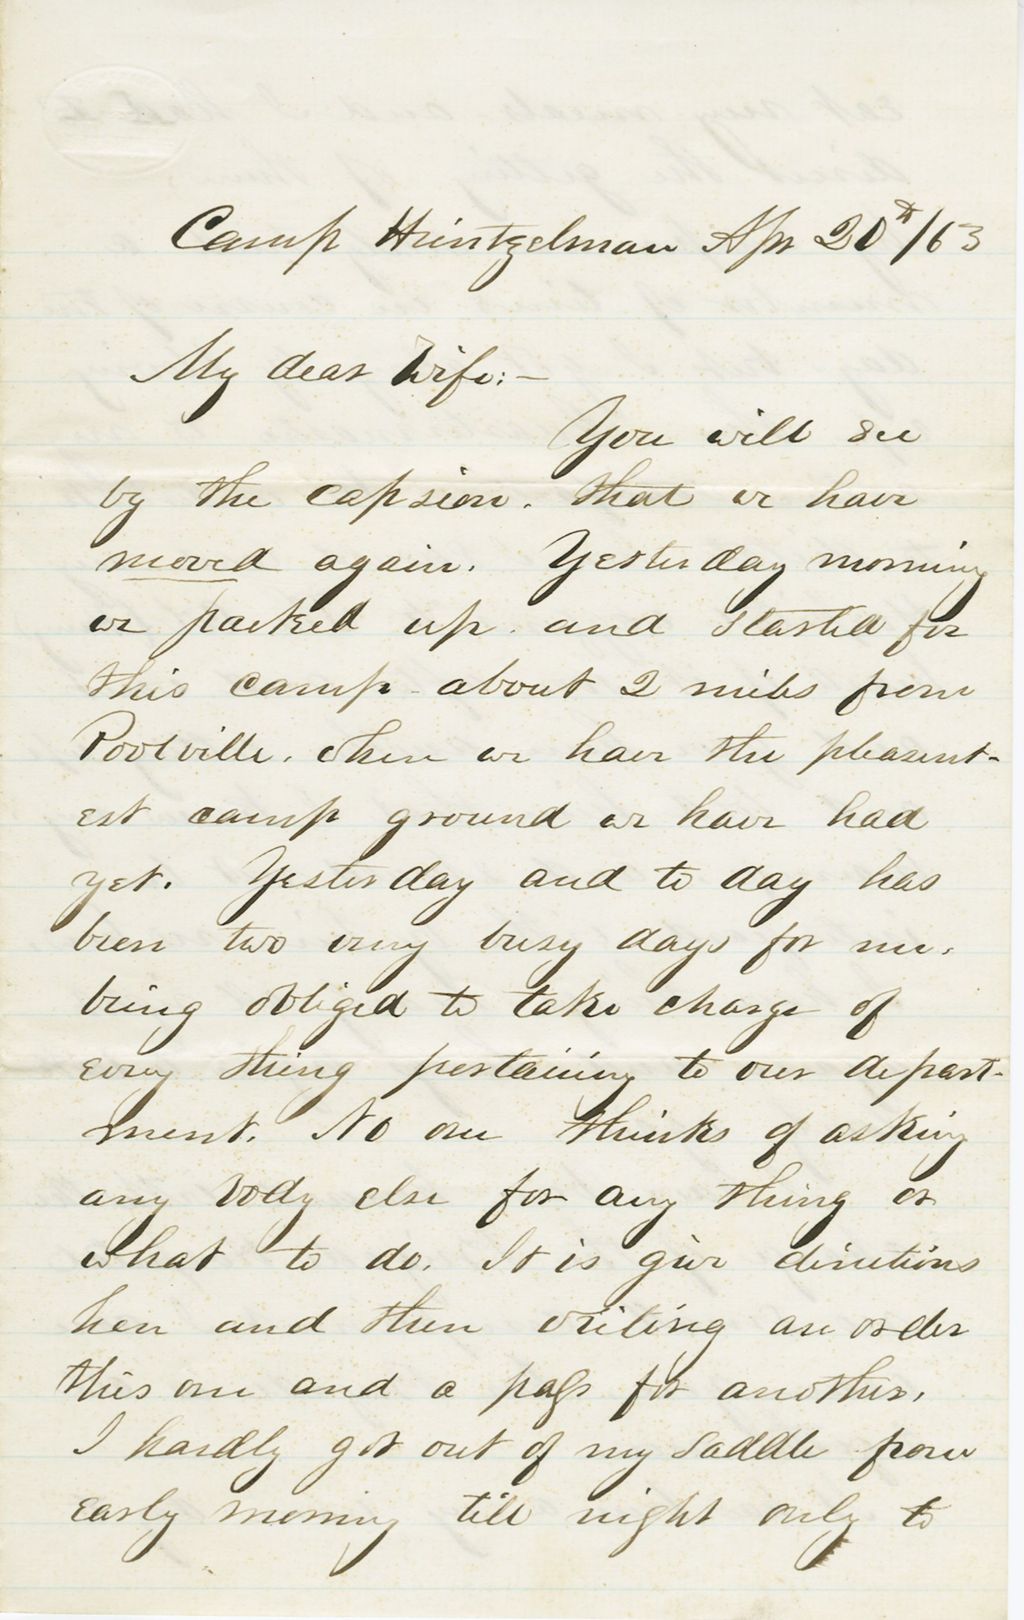 Camp Heintzelman Apr 20th/63
My dear Wife:—
You will see
by the capsion. that we have
moved again. Yesterday morning
we packed up. and started for
this camp about 2 miles from
Poolville. where we have the pleasent-
est camp ground we have had
yet. Yesterday and to day has
been two very busy days for me.
being obliged to take charge of
every thing pertaining to our depart-
ment. No one thinks of asking
any body else for any thing or
what to do. It is give directions
here and there writing an order
this one and a pass for another.
I hardly got out of my saddle from
early morning till night only to